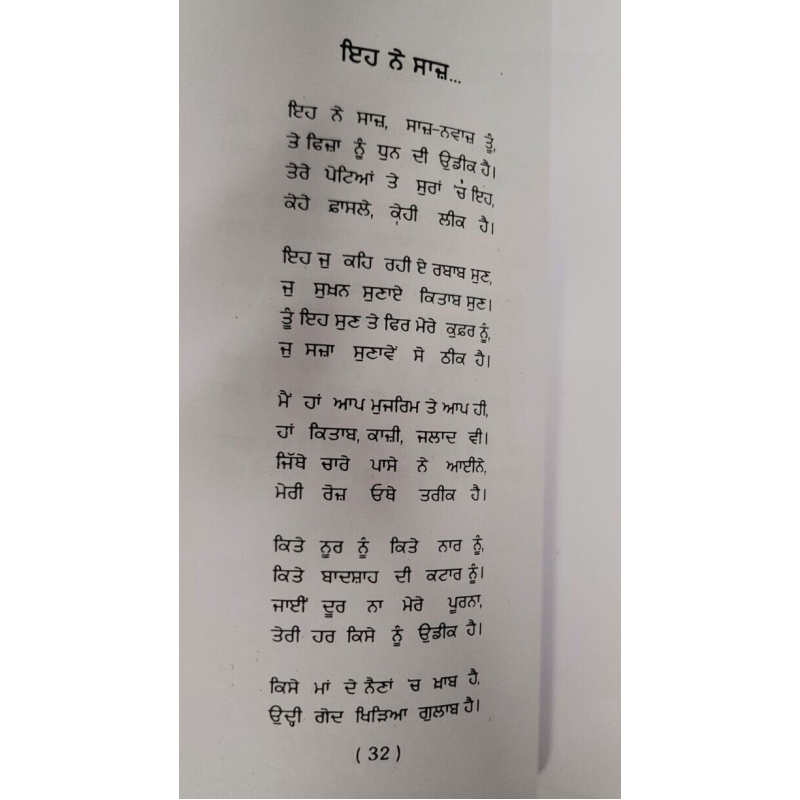 ਇਹ ਨੇ ਸਾਜ਼...
ਇਹ ਨੇ ਸਾਜ਼, ਸਾਜ਼-ਨਵਾਜ਼ ਤੂੰ,
ਤੇ ਫਿਜ਼ਾ ਨੂੰ ਧੁਨ ਦੀ ਉਡੀਕ ਹੈ।
ਤੇਰੇ ਪੋਟਿਆਂ ਤੇ ਸੁਰਾਂ 'ਚ ਇਹ,
ਕੇਹੇ ਫ਼ਾਸਲੇ, ਕੇਹੀ ਲੀਕ ਹੈ।
ਇਹ ਜੁ ਕਹਿ ਰਹੀ ਏ ਰਬਾਬ ਸੁਣ,
ਜੁ ਸੁਖ਼ਨ ਸੁਣਾਏ ਕਿਤਾਬ ਸੁਣ।
ਤੂੰ ਇਹ ਸੁਣ ਤੇ ਫਿਰ ਮੇਰੇ ਕੁਫ਼ਰ ਨੂੰ,
ਜੁ ਸਜ਼ਾ ਸੁਣਾਵੇਂ ਸੋ ਠੀਕ ਹੈ।
ਮੈਂ ਹਾਂ ਆਪ ਮੁਜਰਿਮ ਤੇ ਆਪ ਹੀ,
ਹਾਂ ਕਿਤਾਬ, ਕਾਜ਼ੀ, ਜਲਾਦ ਵੀ।
ਜਿੱਥੇ ਚਾਰੇ ਪਾਸੇ ਨੇ ਆਈਨੇ,
ਮੇਰੀ ਰੋਜ਼ ਓਥੇ ਤਰੀਕ ਹੈ।
ਕਿਤੇ ਨੂਰ ਨੂੰ ਕਿਤੇ ਨਾਰ ਨੂੰ,
ਕਿਤੇ ਬਾਦਸ਼ਾਹ ਦੀ ਕਟਾਰ ਨੂੰ।
ਜਾਈਂ ਦੂਰ ਨਾ ਮੇਰੇ ਪੂਰਨਾ,
ਤੇਰੀ ਹਰ ਕਿਸੇ ਨੂੰ ਉਡੀਕ ਹੈ।
ਕਿਸੇ ਮਾਂ ਦੇ ਨੈਣਾਂ 'ਚ ਖ਼ਾਬ ਹੈ,
ਉਦ੍ਹੀ ਗੋਦ ਖਿੜਿਆ ਗੁਲਾਬ ਹੈ।
( 32 )